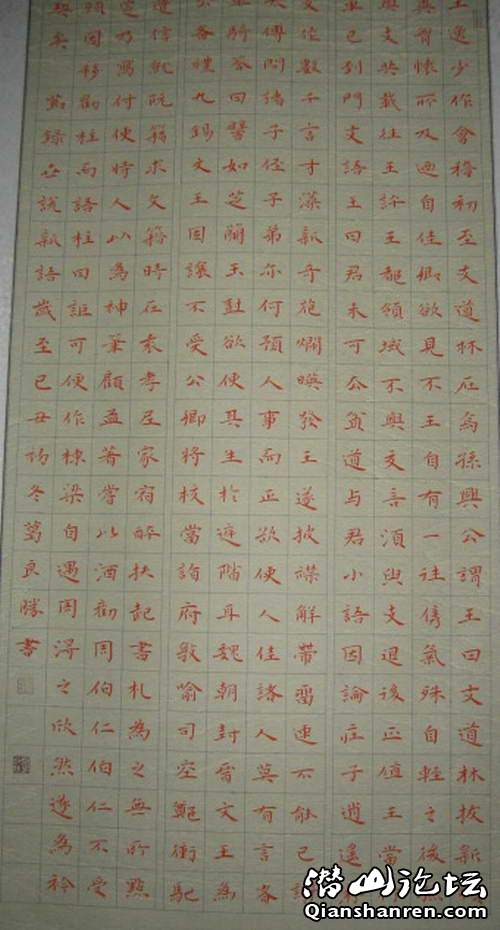 王逸少作會稽初至支道林在焉孫興公謂王曰支道林拔新
異胷懷所及迺自佳卿欲見不王自有一往儁氣殊自輕之後
與支共載往王許王都領域不與交言須臾支退後正值王當
車已到門支語王曰君未可去貧道与君小語因論莊子逍遙
支作數千言才藻新奇花爛暎發王遂披襟解帶留連不能已
傅問諸子侄子弟亦何預人事而正欲使人佳諸人莫有言者
車騎答曰譬如芝蘭玉樹欲使其生於庭階耳魏朝封晉文王為
公備禮九錫文王固讓不受公卿將校當詣府敦喻司空鄭衝馳
遣信就阮籍求文籍時在袁孝尼家宿醉扶起書札為之無所點
定乃寫付使時人以為神筆顧孟著嘗以酒勸周伯仁伯仁不受
顧因移勸柱而語柱曰詎可便作棟梁自遇周得之欣然遂為衿
契矣節錄世說新語歲至己丑初冬葛良勝書
潜山论坛
Qianshanren.com